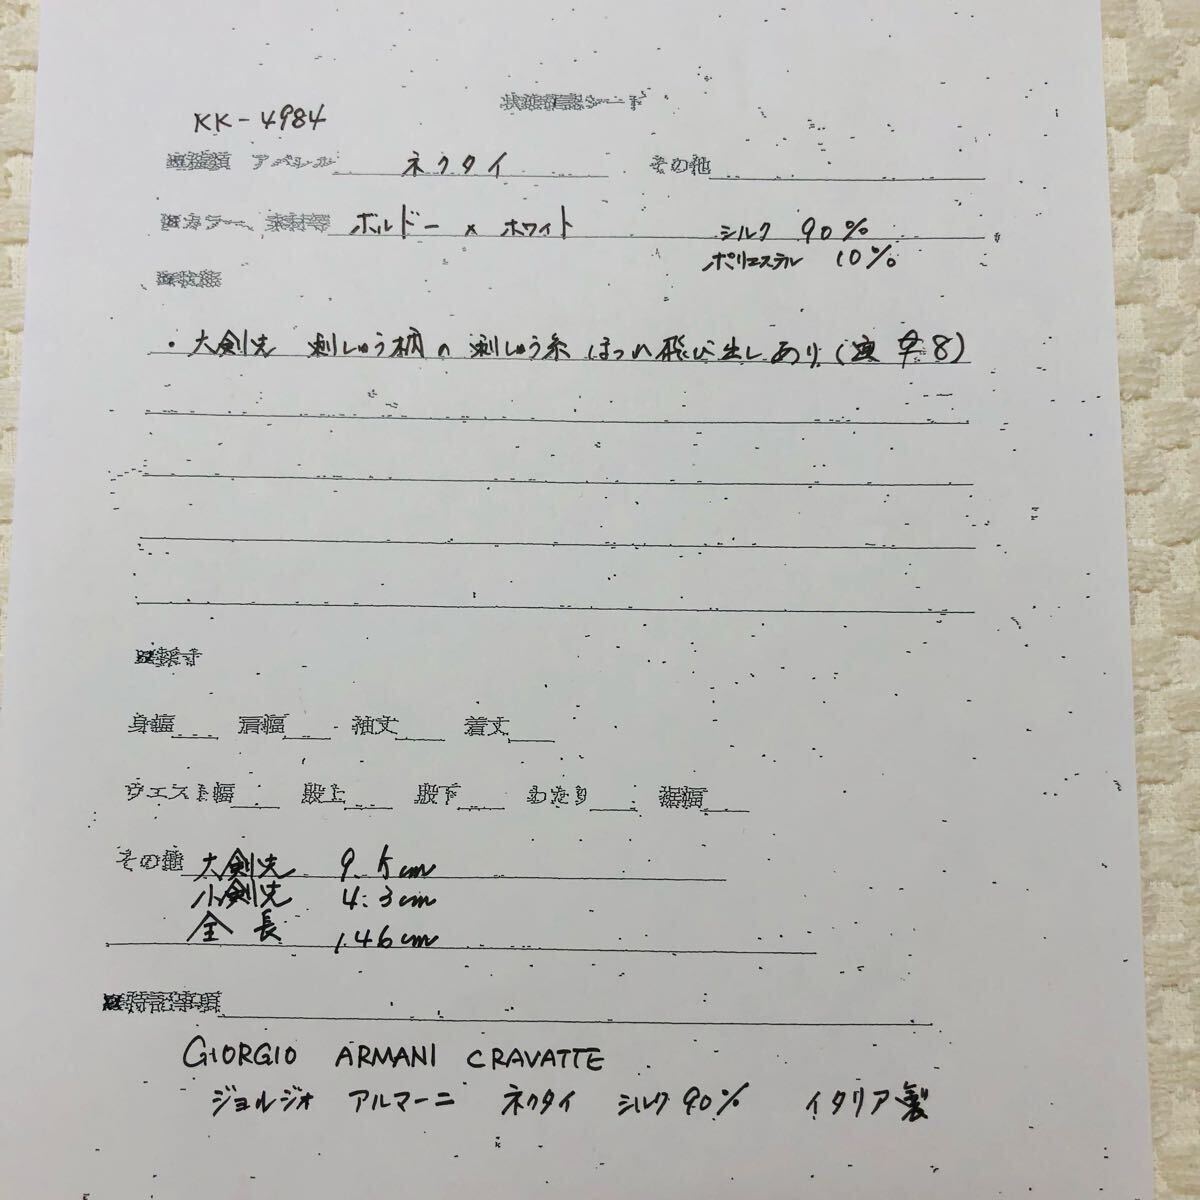 状態確認シート
KK-4984
■種類 アパレル ネクタイ その他
■カラー、素材等 ボルドー × ホワイト シルク 90%
ポリエステル 10%
■状態
・大剣先 刺しゅう柄の刺しゅう糸 ほつれ飛び出しあり(写8)
■採寸
身幅 肩幅 袖丈 着丈
ウエスト幅 股上 股下 わたり 裾幅
その他 大剣先 9.5cm
小剣先 4.3cm
全長 146cm
■特記事項
GIORGIO ARMANI CRAVATTE
ジョルジオ アルマーニ ネクタイ シルク90% イタリア製